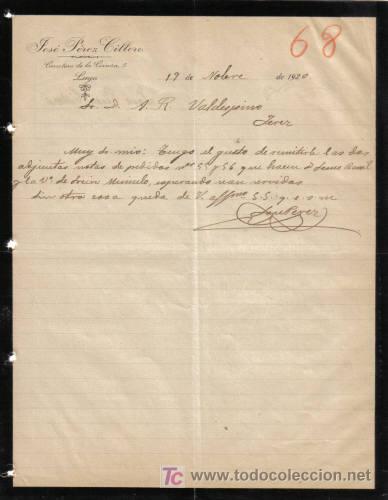 68
José Pérez Cillero
Carretera de la Coruña, 5
Lugo
19 de Nobre de 1920
Sr. D. A. R. Valdespino
Jerez
Muy Sr. mio: Tengo el gusto de remitirle las dos
adjuntas notas de pedidos nos 5 y 56 que hacen D. Jesus
y la Vda. de esperando sean servidas
Sin otra cosa queda de V. affmo. S.S. q. e. s. m.
José Pérez
TC www.todocoleccion.net